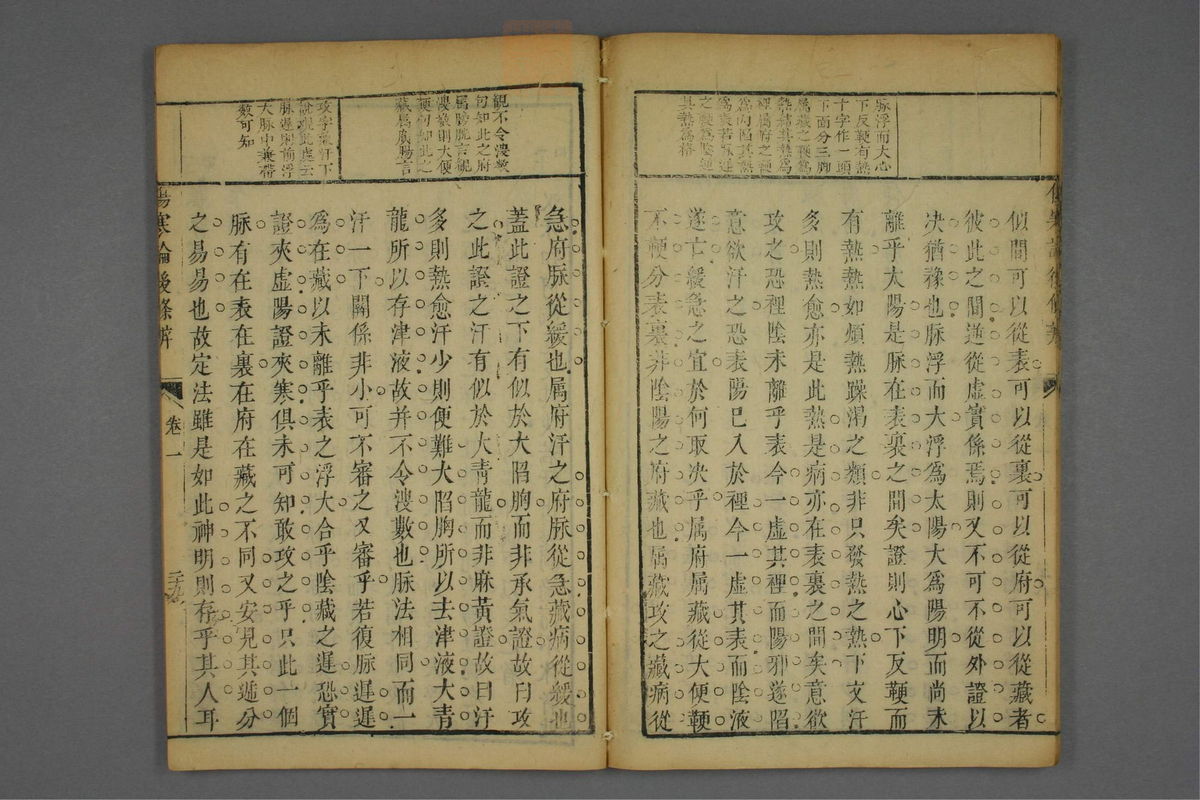 脉浮而大心
下反鞕有熱
十字作一頭
下面分三胸
属藏之鞕爲
熱爲其熱爲
裡属府之鞕
爲內因其熱
爲表若脉遲
之鞕爲陰遲
其熱爲格
似間可以從表可以從裏可以從府可以從藏者
彼此之間遊從虛實係焉則又不可不從外證以
决猶豫也脉浮而大浮爲太陽大爲陽明而尚未
離乎大陽是脉在表裏之間矣證則心下反鞕而
有熱熱如煩熱躁渴之類非只發熱之熱下文汗
多則熱愈亦是此熱是病亦在表裏之間矣意欲
攻之恐裡陰未離乎表今一虛其裡而陽邪遂陷
意欲汗之恐表陽已入於裡今一虛其表而陰液
遂亡緩急之宜於何取决乎属府属藏從大便鞕
不鞕分表裏非陰陽之府藏也属藏攻之藏病從
觀不令溲數
句知此之府
属膀胱言觀
溲數則大便
鞕句知此之
藏属廣腸言
攻字兼汗下
說觀此處云
脉遲則前浮
大脉中兼帶
數可知
急府脉從緩也属府汗之府脉從急藏病從緩也
蓋此證之下有似於大陷胸而非承氣證故曰攻
之此證之汗有似於大青龍而非麻黃證故曰汗
多則熱愈汗少則便難大陷胸所以去津液大青
龍所以存津液故并不令溲數也脉法相同而一
汗一下關係非小可不審之又審乎若復脉遲遲
爲在藏以未離乎表之浮大合乎陰藏之遲恐實
證夾虛陽證夾寒俱未可知敢攻之乎只此一個
脉有在表在裏在府在藏之不同又安見其遞分
之易易也故定法雖是如此神明則存乎其人耳
傷寒論後條辨
卷一
二十九